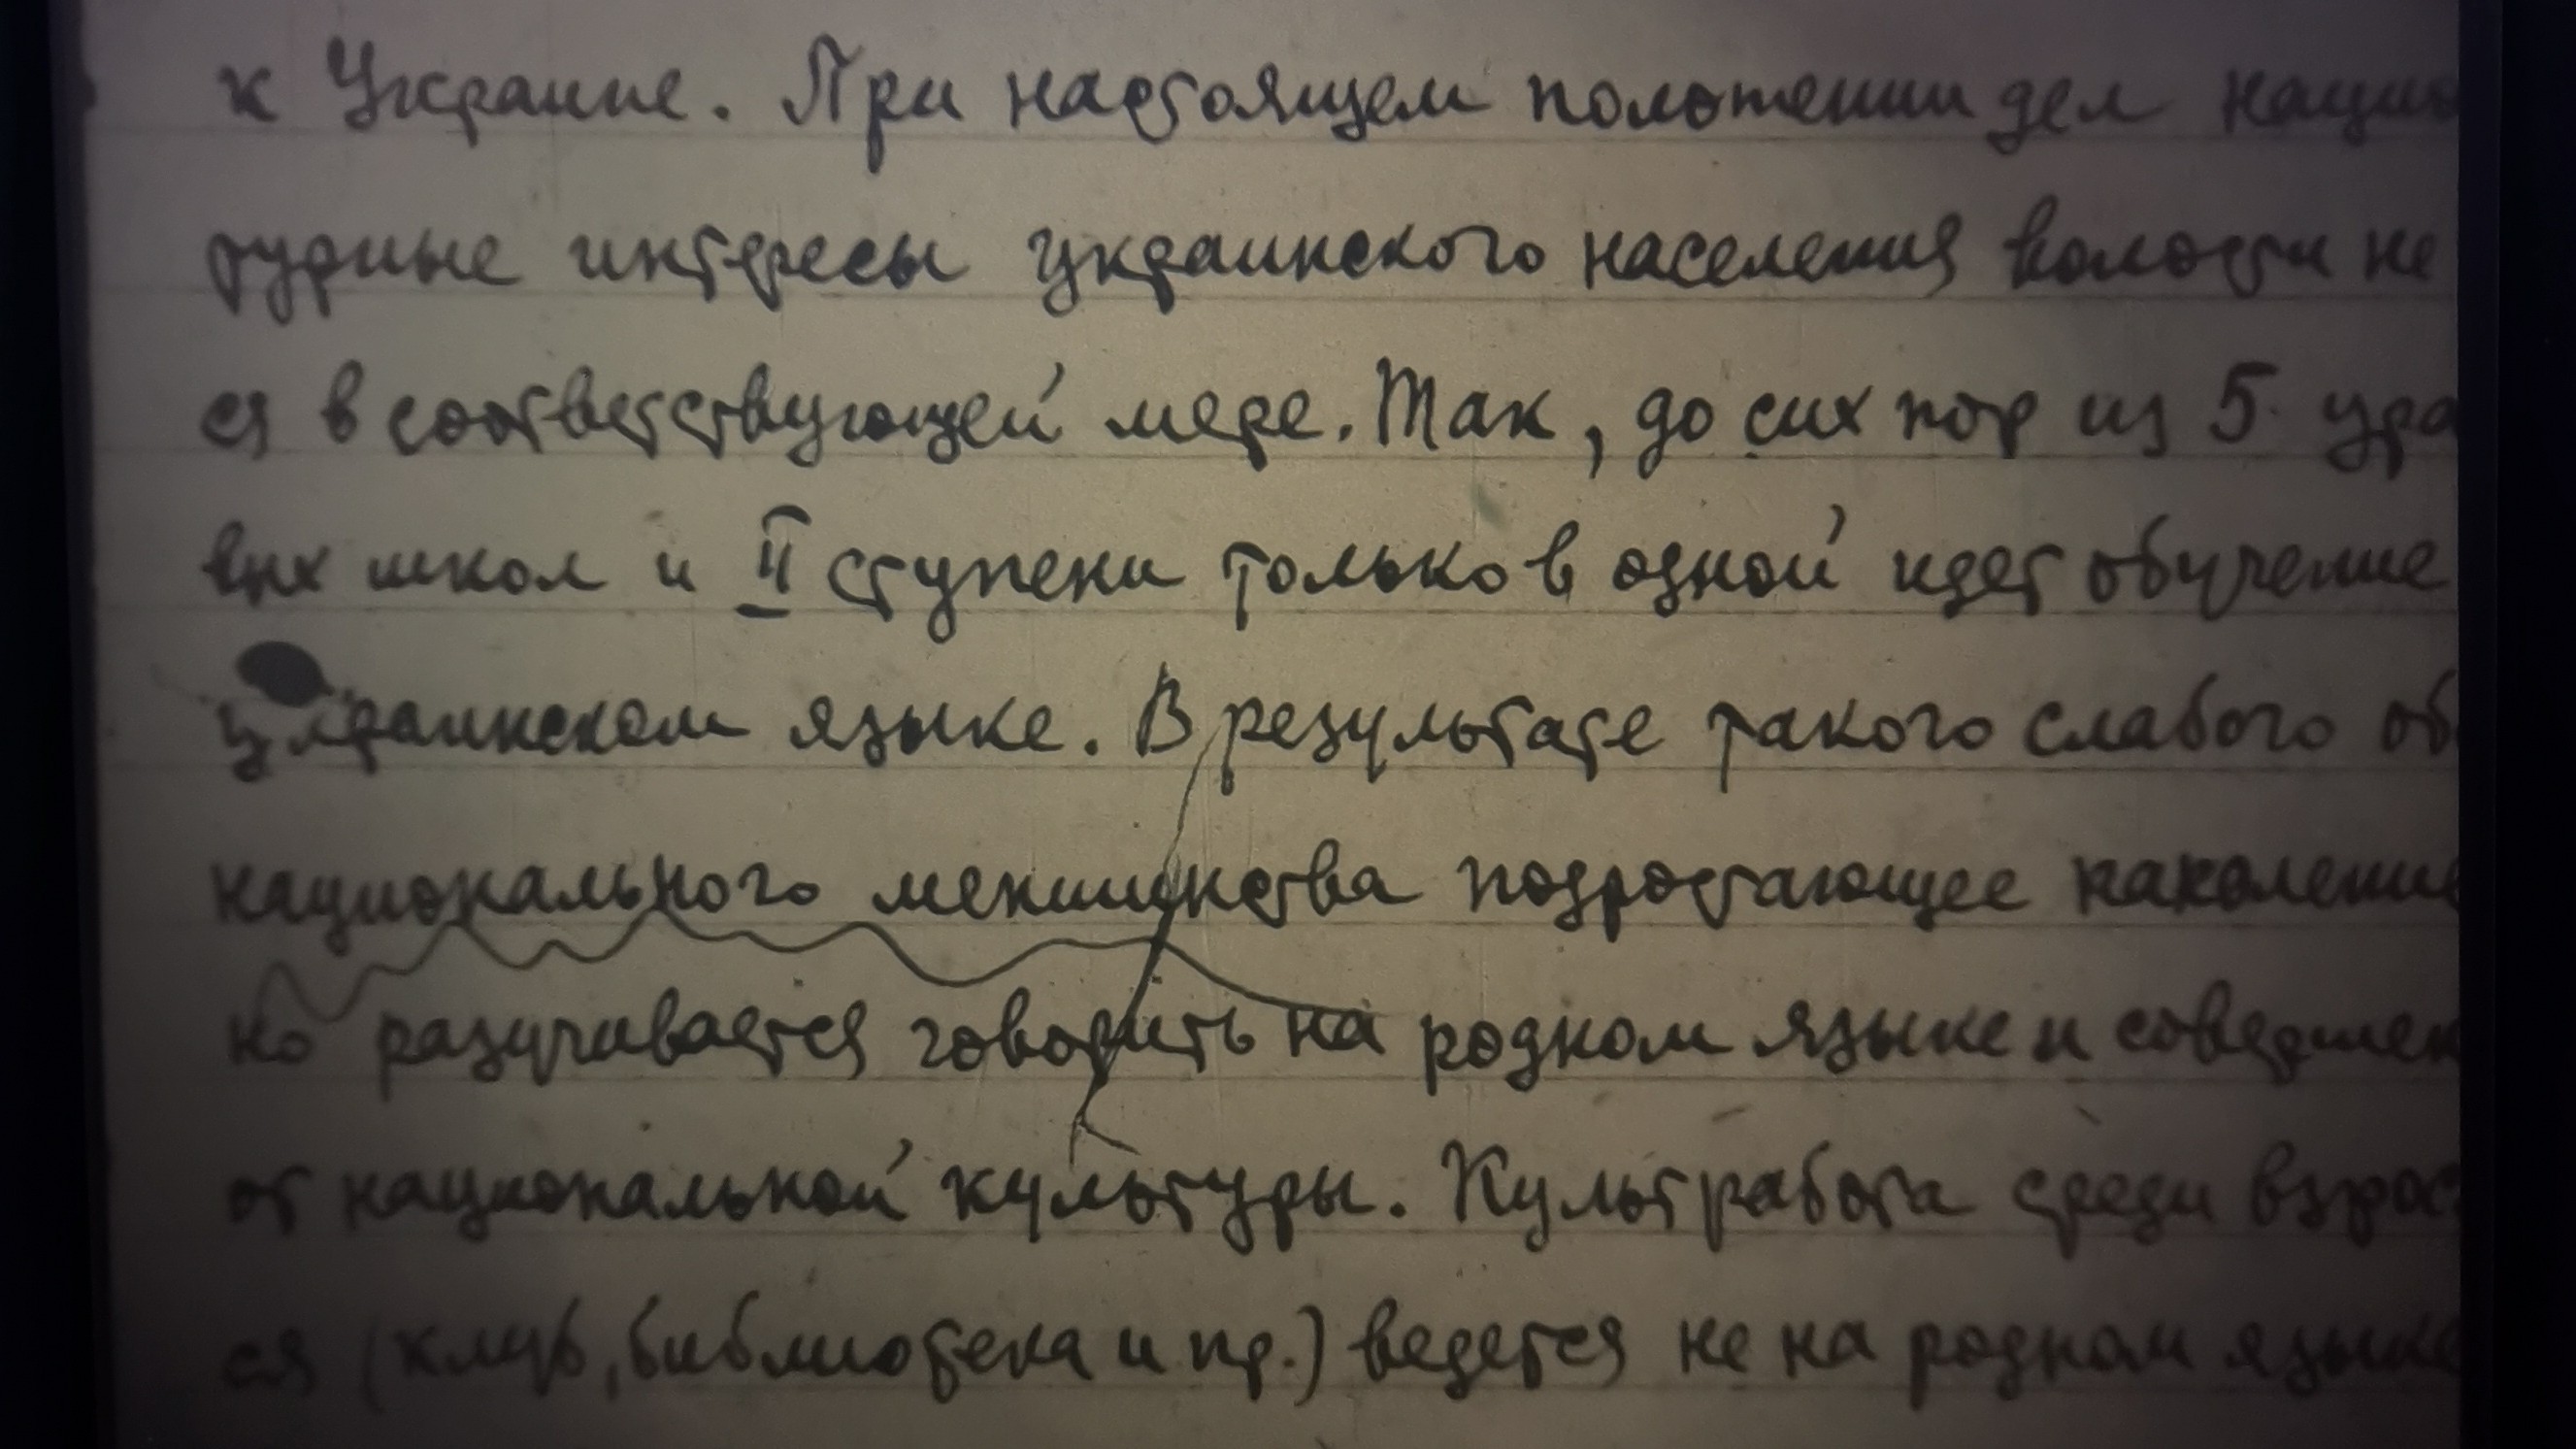 к Украине. При настоящем положении дел нацио
турные интересы украинского населения волости не
ся в соответствующей мере. Так, до сих пор из 5 ура
вых школ и II ступени только в одной идет обучение
украинском языке. В результате такого слабого об
национального меншинства подростающее поколение
но разучивается говорить на родном языке и совершен
от национальной культуры. Культработа среди взрос
ся (клуб, библиотека и пр.) ведется не на родном языке